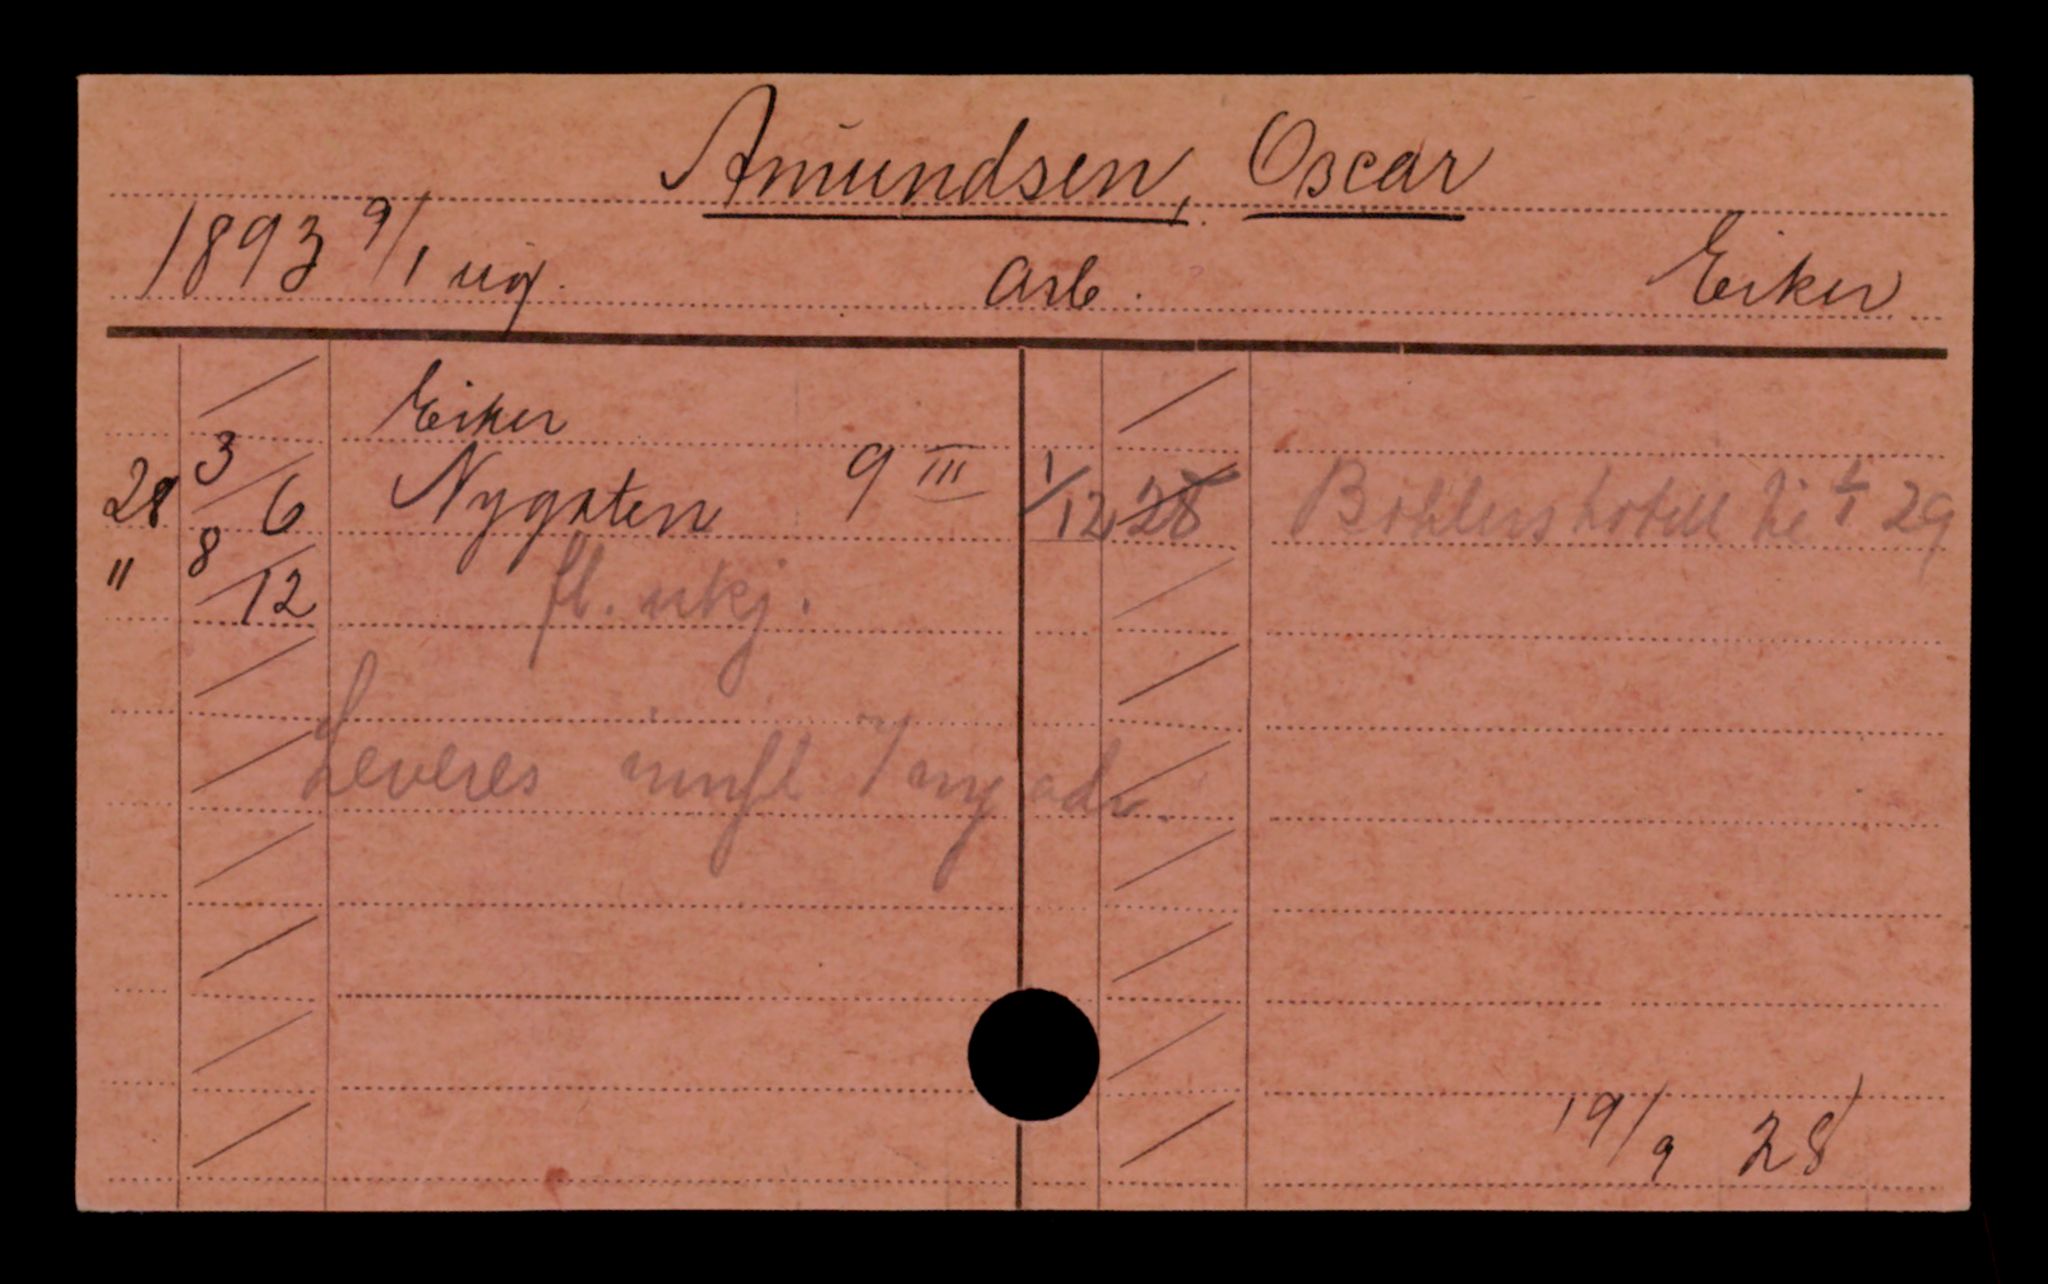 Amundsen, Oscar
1893 9/1 ug. arb. Eiker
Eiker
28 3/6 Nygaten 9 III 1/12 28 Böhlers hotell til 4/1 29
" 8/12 fl. ukj.
Leveres innfl 7 ny adr.
19/9 28